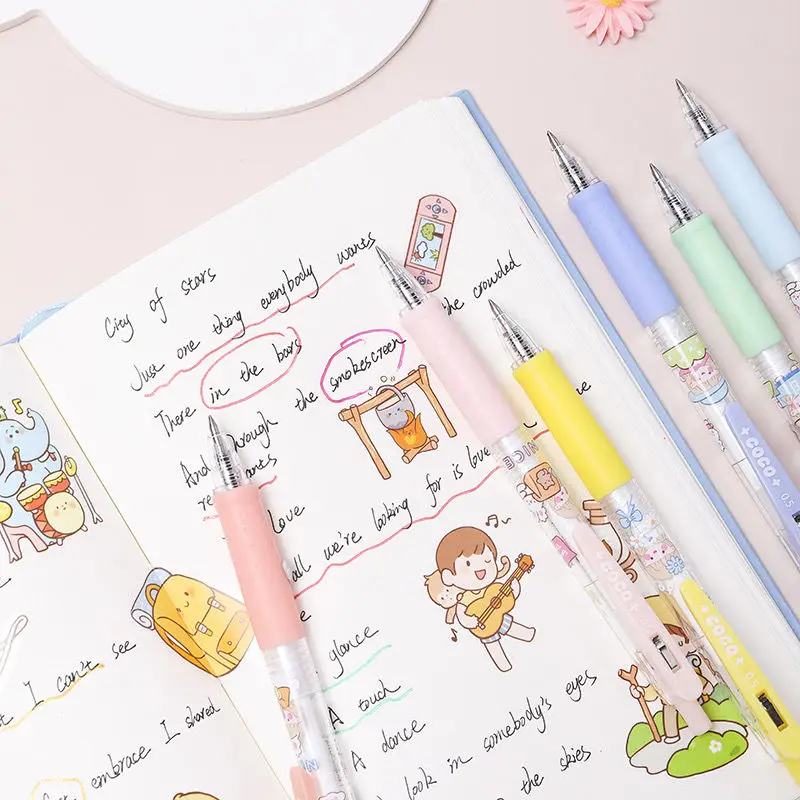 City of stars
Just one thing everybody wants
There in the bars
And through the smokescreen the crowded
love
all we're looking for is love
glance
A touch
A dance
look in somebody's eyes
the skies
I can't see
embrace I shared
NICE
COCO
0.5
COCO
0.5
COCO
0.5